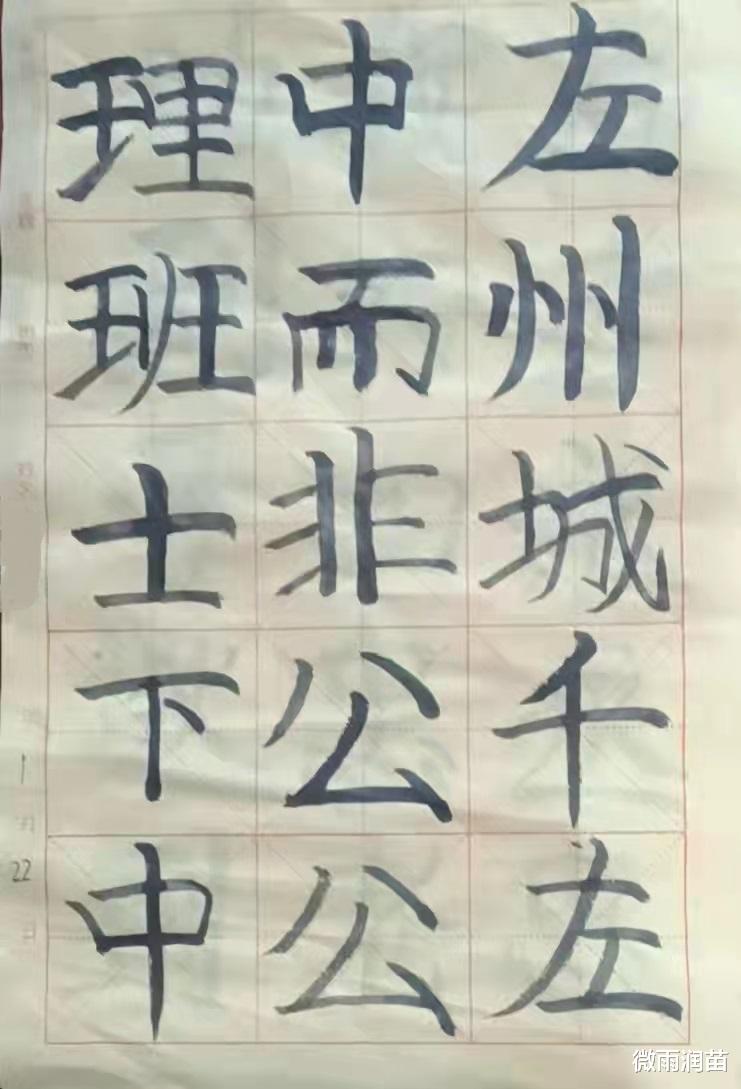 左州城千左
中而非公公
理班士下中
1
22
日
微雨润苗